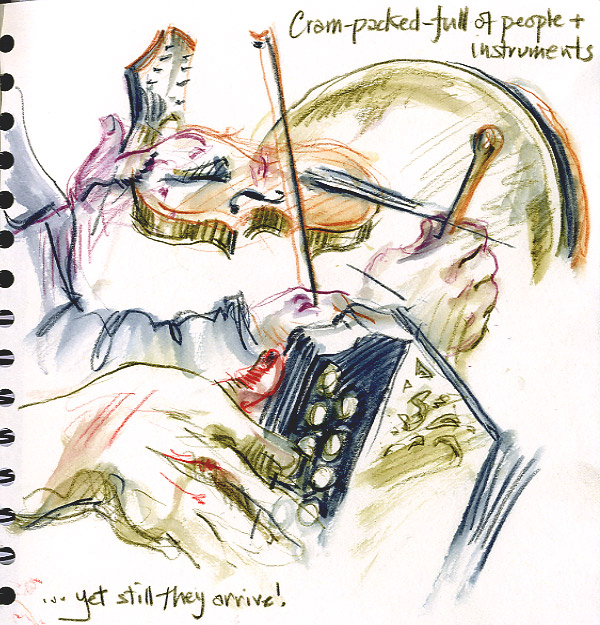 Cram-packed-full of people +
instruments
... yet still they arrive!